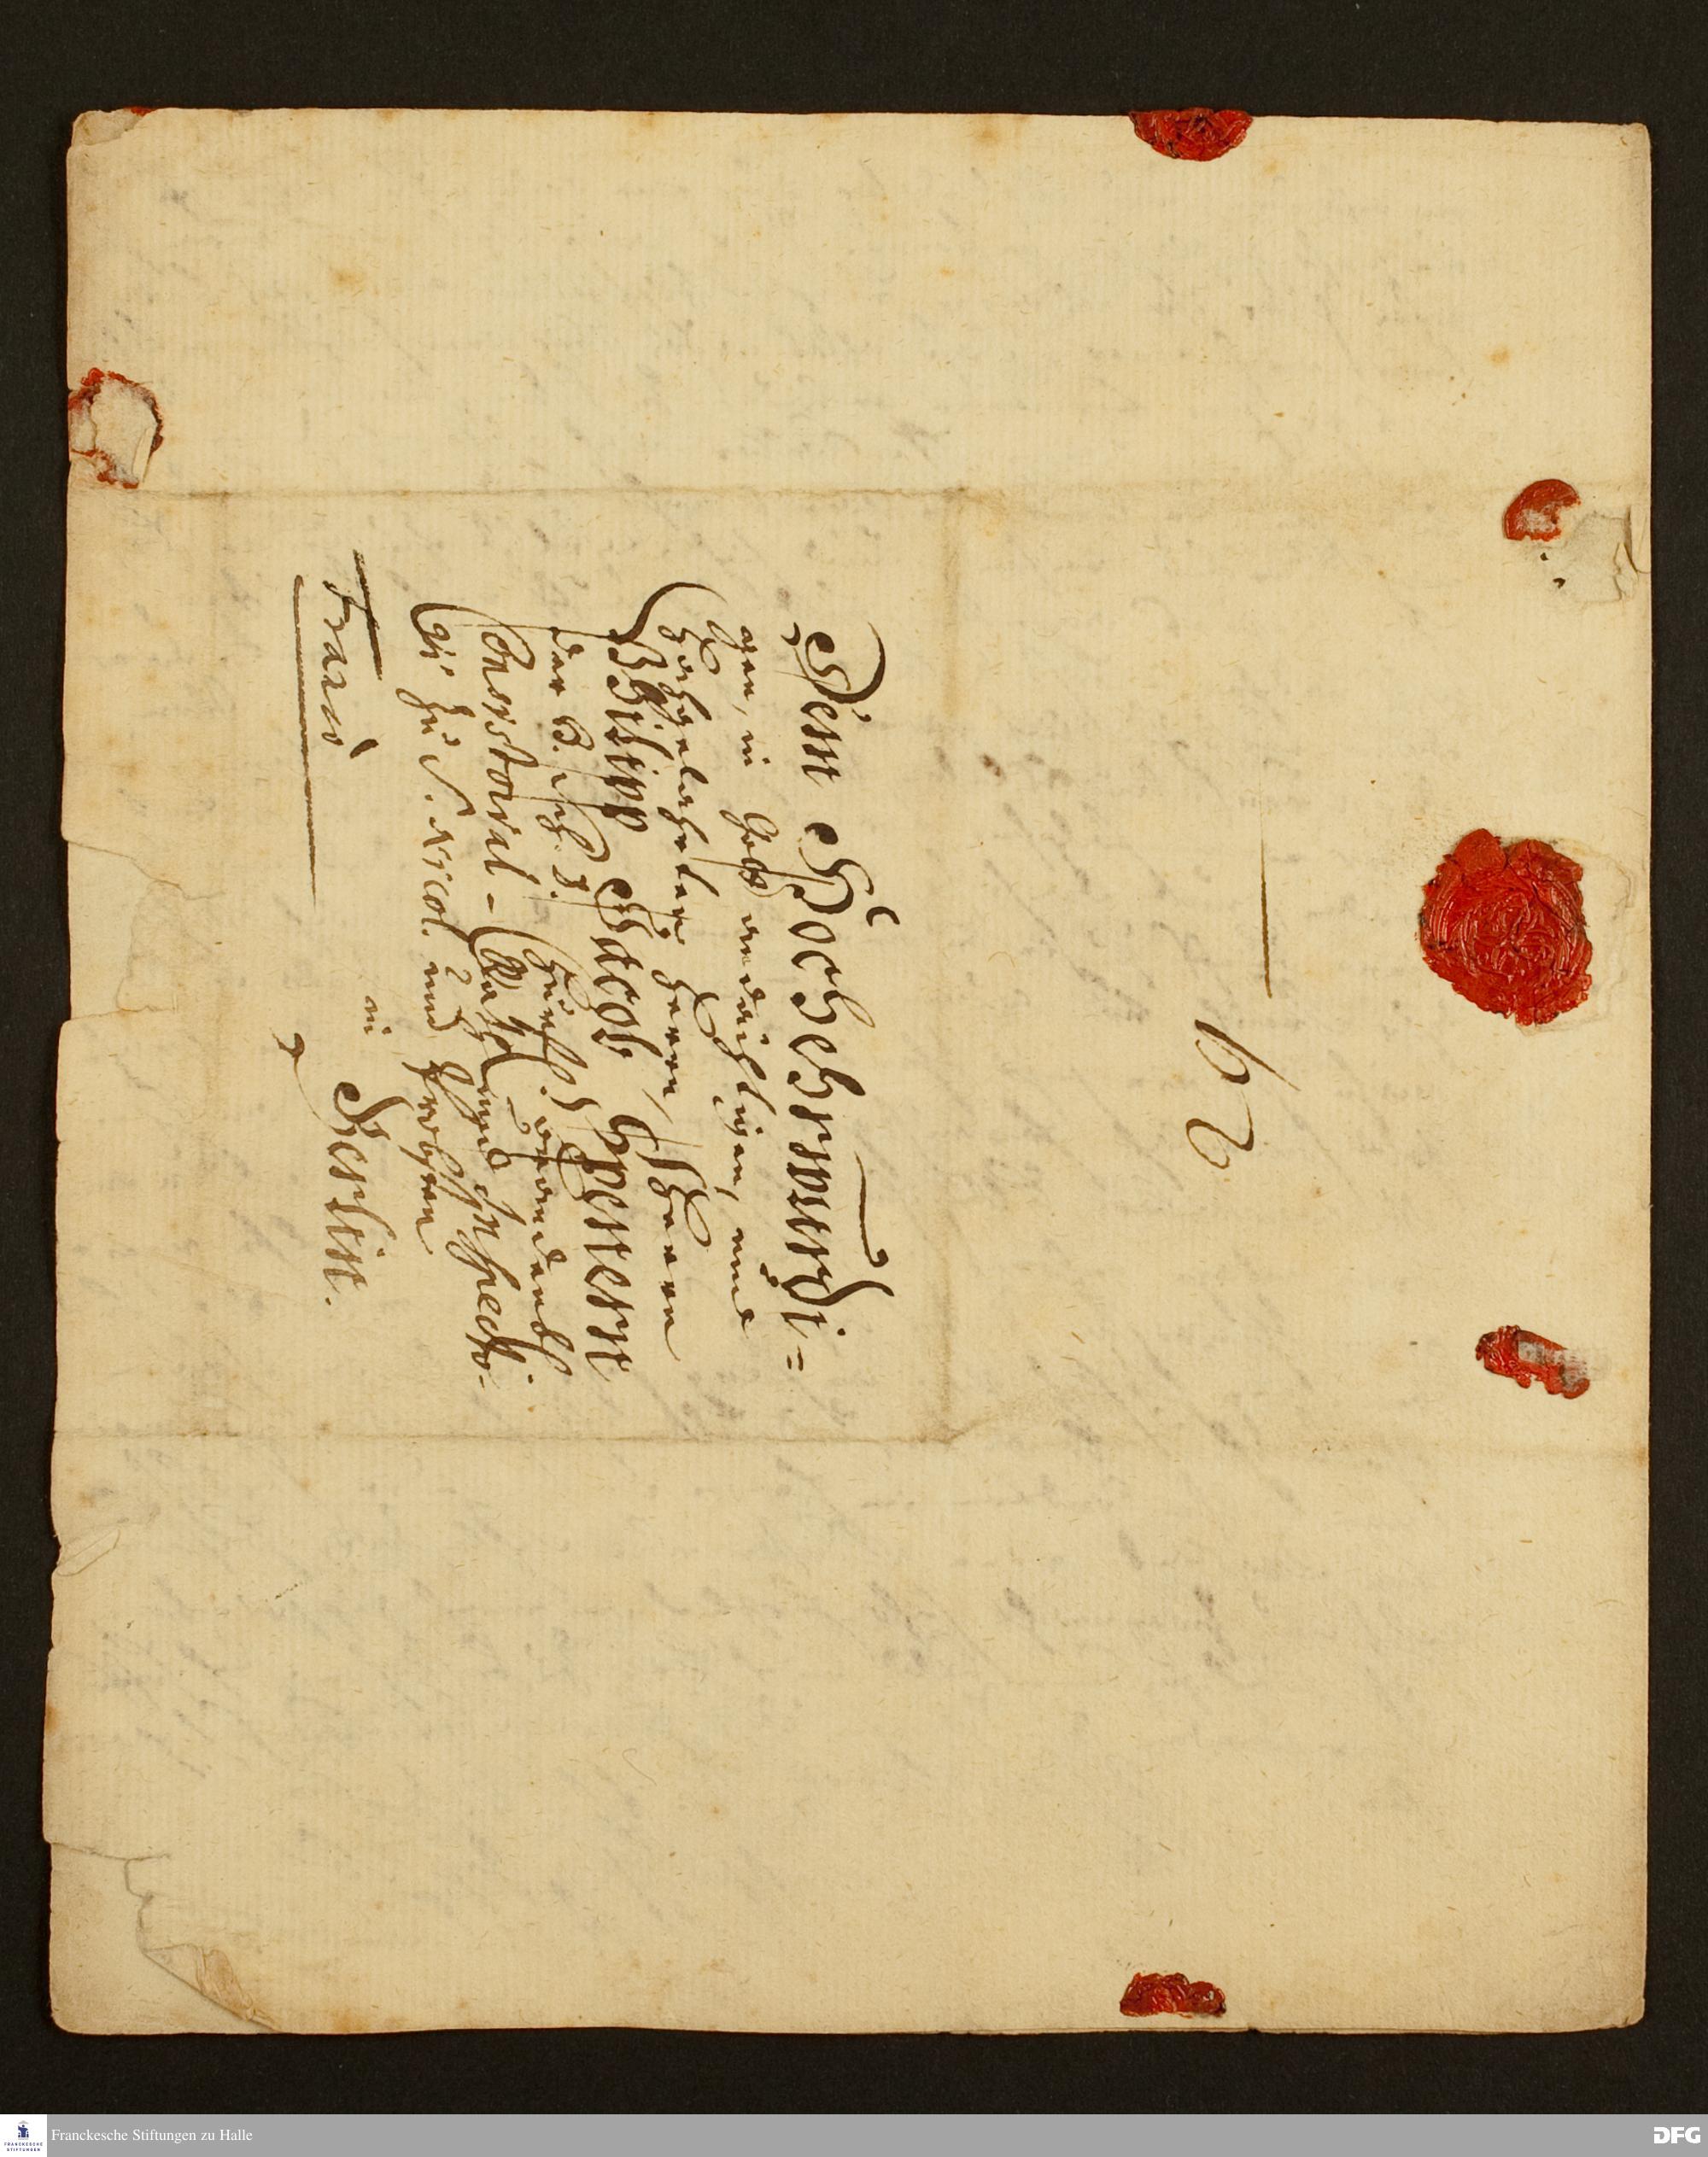 Dem Hochehrwürdi=
gen, in Gott andächtigen, und
Hochgelahrten Herrn, Herrn
Philipp Jacob Spenern
der H. Schr. D. Churfl. Brandenb.
Consistorial-Rath und Inspecto-
zu S. Nicol. und Probsten
in
Berlin.
Franco
Franckesche Stiftungen zu Halle
FRANCKESCHE
STIFTUNGEN
DFG